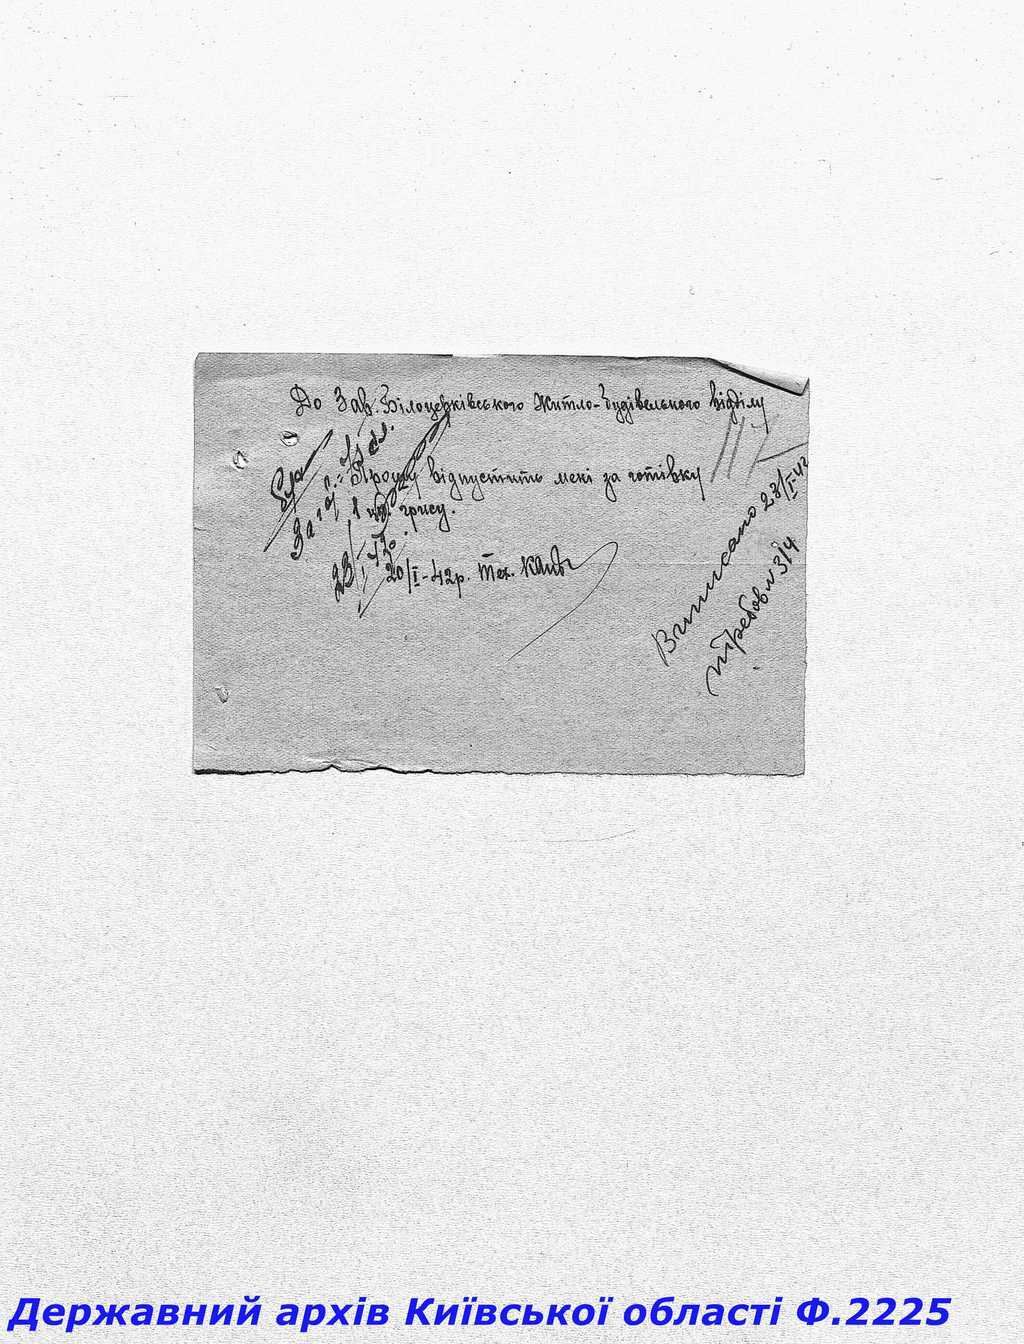 До Зав. Білоцерківського Житло-Будівельного відділу
Прошу відпустить мені за готівку
1 кгр. грису.
20/I-42р. Тех.
Виписано 23/I-42
требов № 3/4
Державний архів Київської області Ф.2225